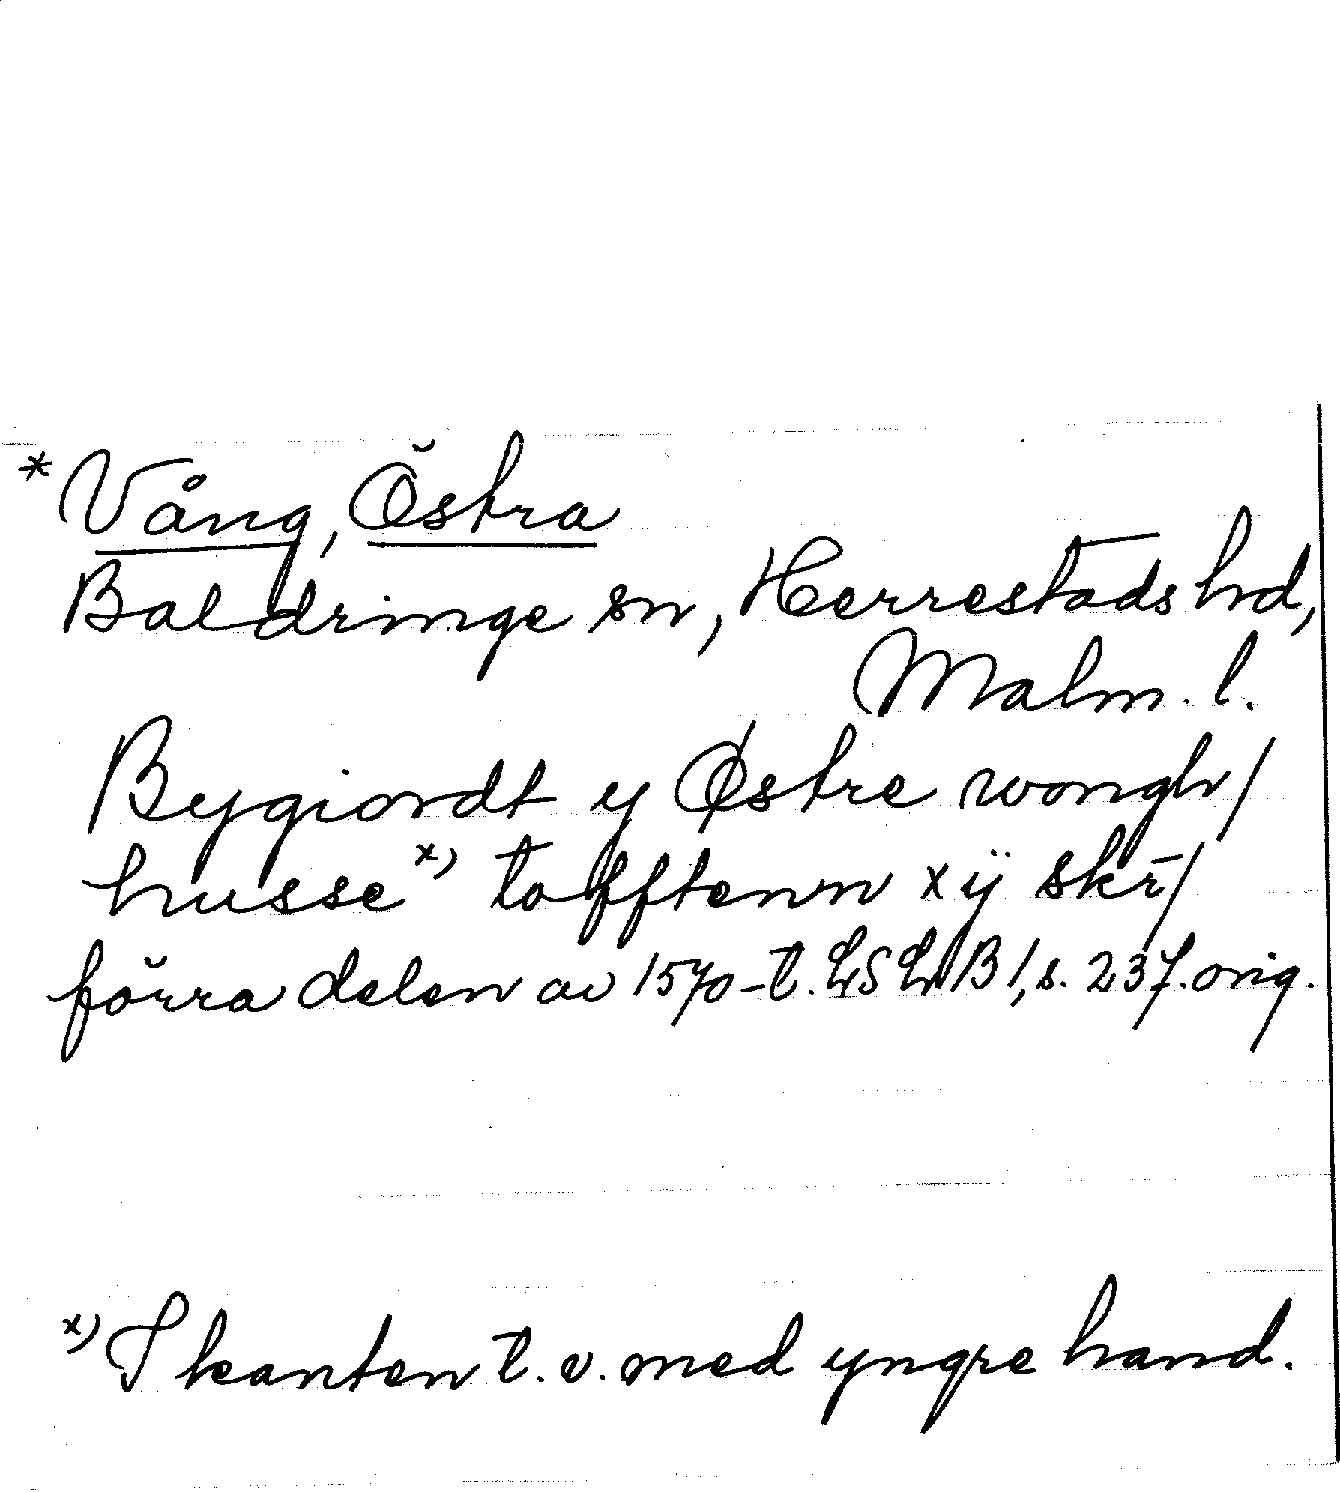 * Vång, Östra
Baldringe sn, Herrestads hd,
Malm. l.
Bygiordt y Østre wongh/
husse x) tofftenn xÿ skr̄/
förra delen av 1570-t. LSLB 1, s. 237. orig.
x) I kanten t. v. med yngre hand.